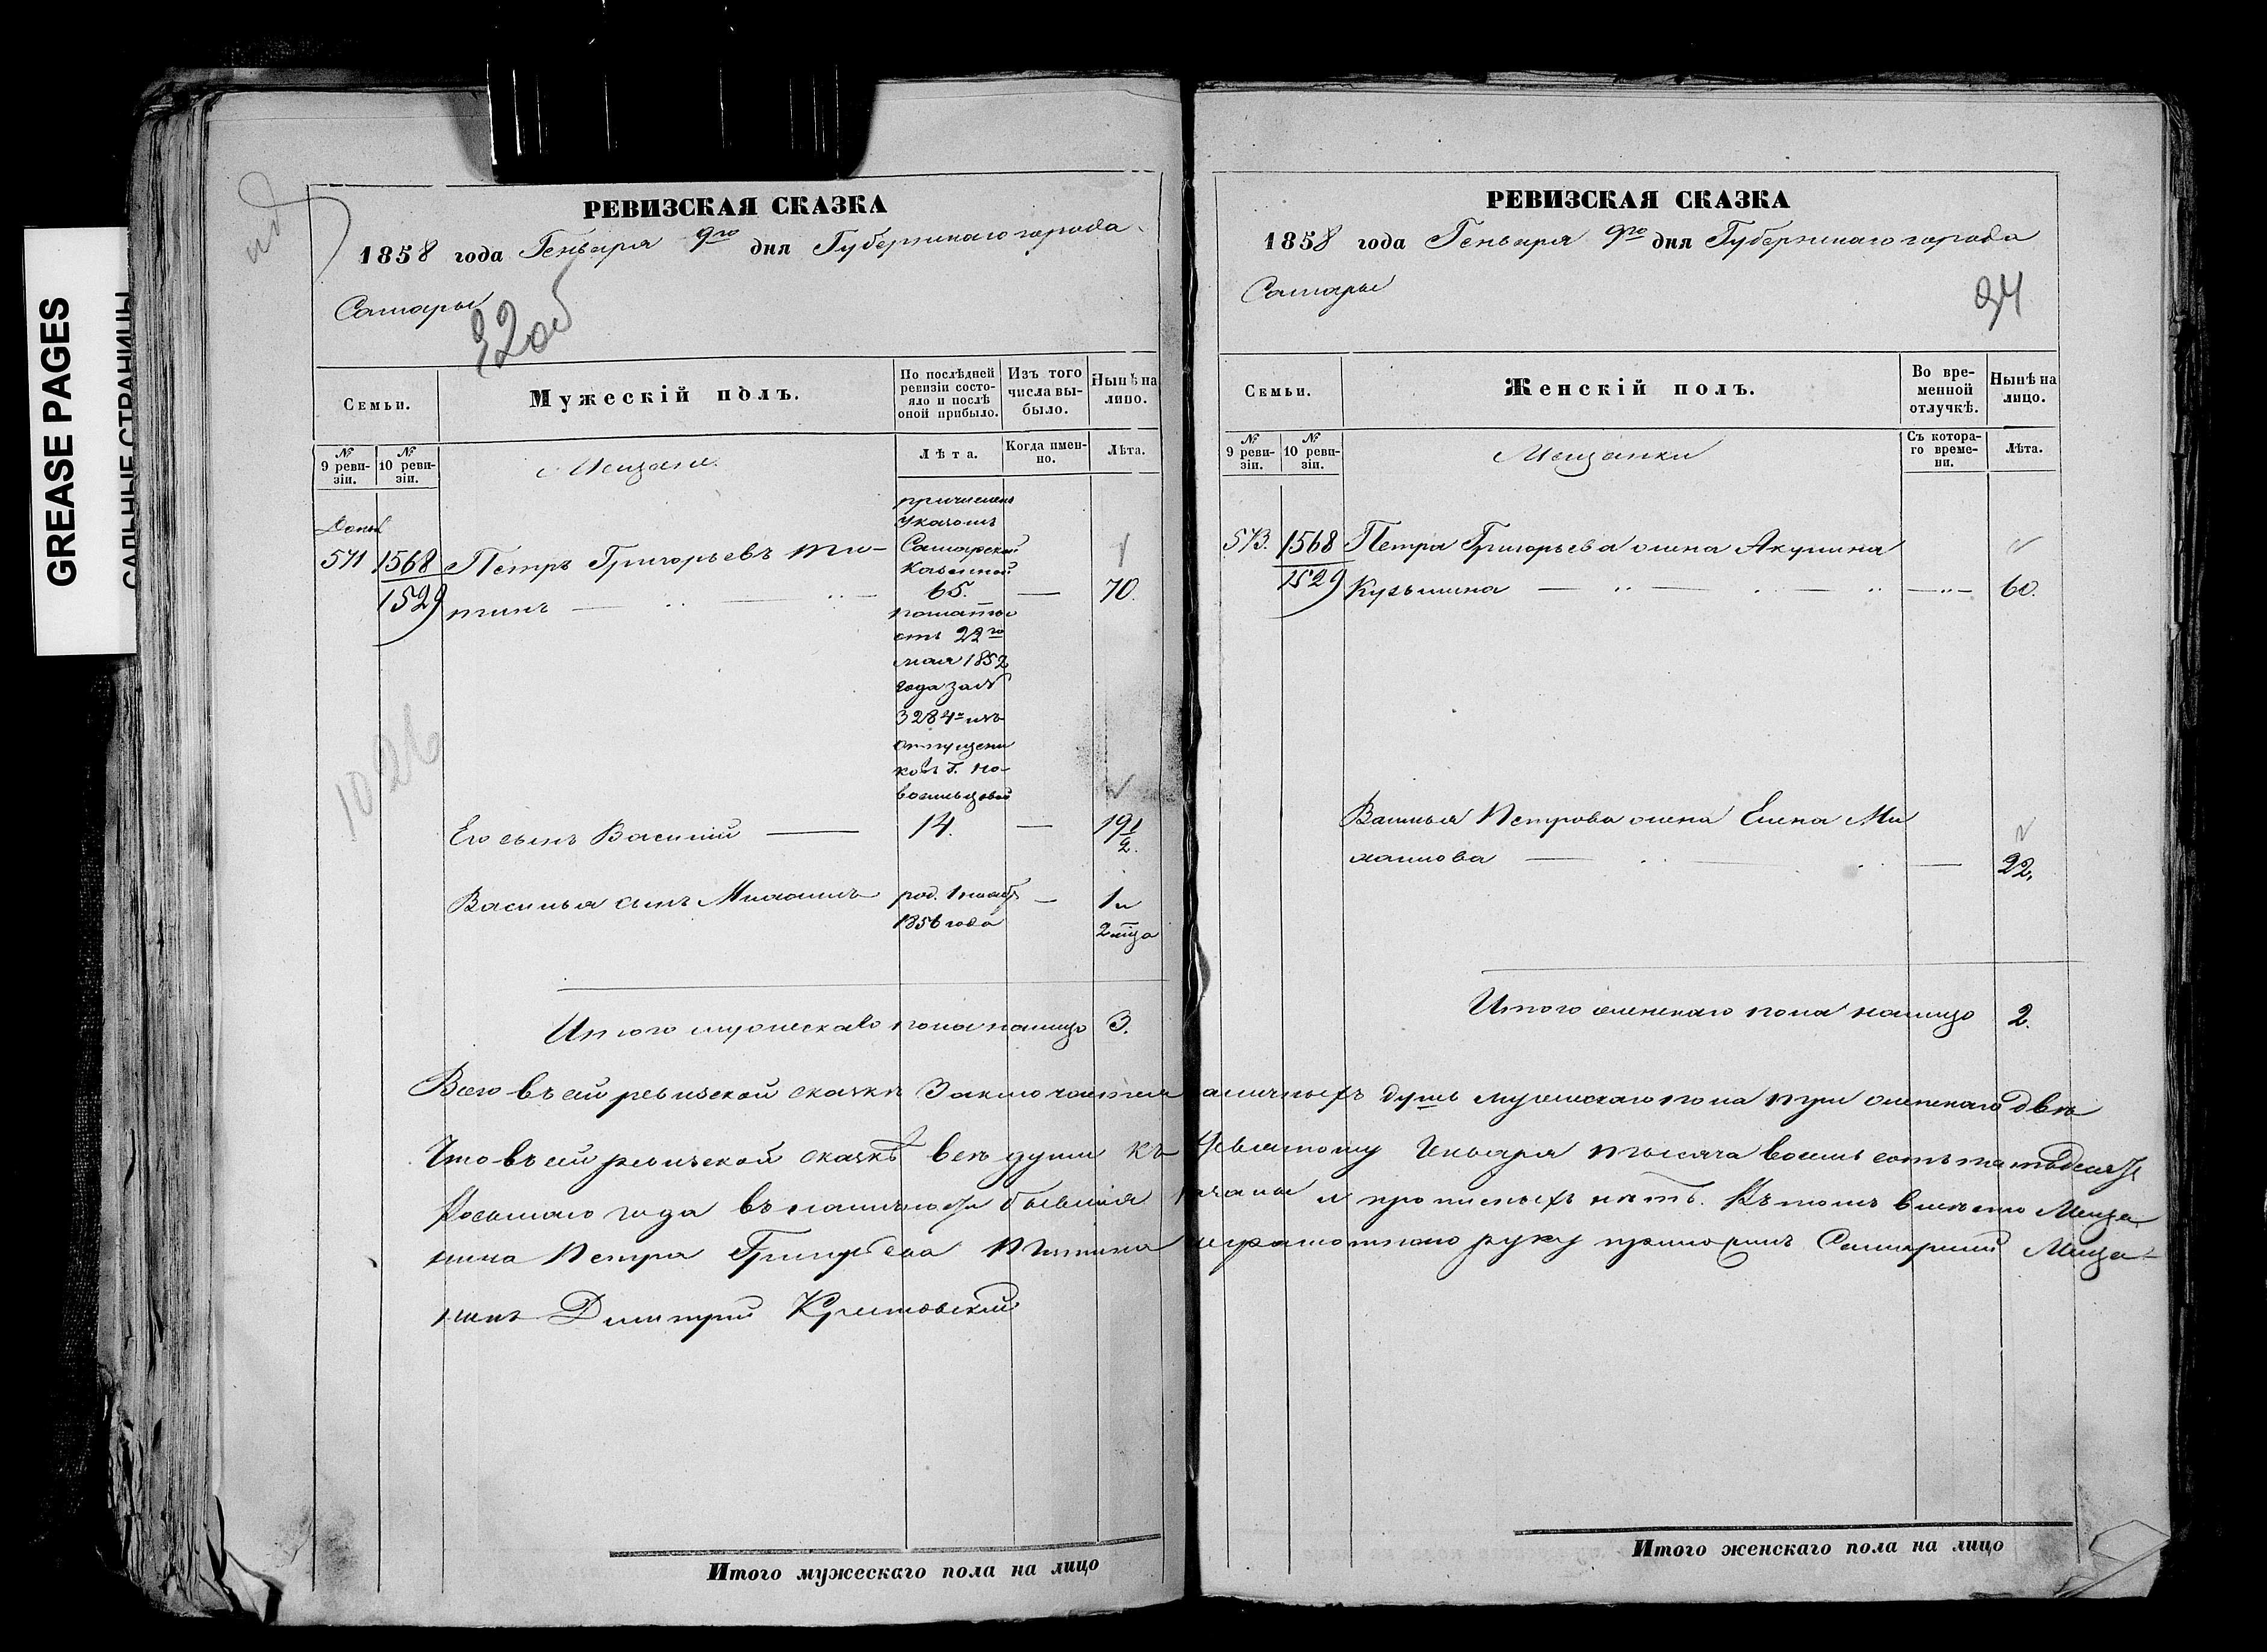 GREASE PAGES
САЛЬНЫЕ СТРАНИЦЫ
РЕВИЗСКАЯ СКАЗКА
1858 года Генваря 9го дня Губернскаго города
Самары
Семьи.
Мужескiй полъ.
По послѣдней ревизiи состояло и послѣ оной прибыло.
Изъ того числа выбыло.
Нынѣ на лицо.
№ 9 ревизiи.
№ 10 ревизiи.
Мещане.
Лѣта.
Когда именно.
Лѣта.
причислены
указомъ
Самарской
Казенной
571 1568 Петръ Григорьевъ Ти-
1529 тинъ 65. 70.
палаты
отъ 22го
мая 1852
года за №
3284 изъ
отпущени
ковъ Г. Но-
восильцовой
1026
Его сынъ Василий 14. 19 1/2.
Васильа сынъ Михаилъ род. 1 ноабр. 1 и
1856 года 2 мца
Итого мужескаго пола налицо 3.
РЕВИЗСКАЯ СКАЗКА
1858 года Генваря 9го дня Губернскаго города
Самары
94
Семьи.
Женскiй полъ.
Во временной отлучкѣ.
Нынѣ на лицо.
№ 9 ревизiи.
№ 10 ревизiи.
Мещанки
Съ котораго времени.
Лѣта.
573. 1568 Петра Григорьева жена Акулина
1529 Кузьмина 60.
Васильа Петрова жена Елена Ми
хаилова 22.
Итого женскаго пола налицо 2.
Всего въ сей ревизской сказкѣ заключается наличныхъ душъ мужескаго пола три женскаго двѣ
Что въ сей ревизской сказкѣ всѣ души къ девятому Генваря тысяча восемь сотъ пятьдесятъ
восьмаго года въ наличности бывшiя показаны и прописныхъ нѣтъ. Въ томъ вмѣсто Меща
нина Петра Григорьева Титина неграмотного руку приложилъ Самарский Меща-
нинъ Димитрий
Итого мужескаго пола на лицо
Итого женскаго пола на лицо